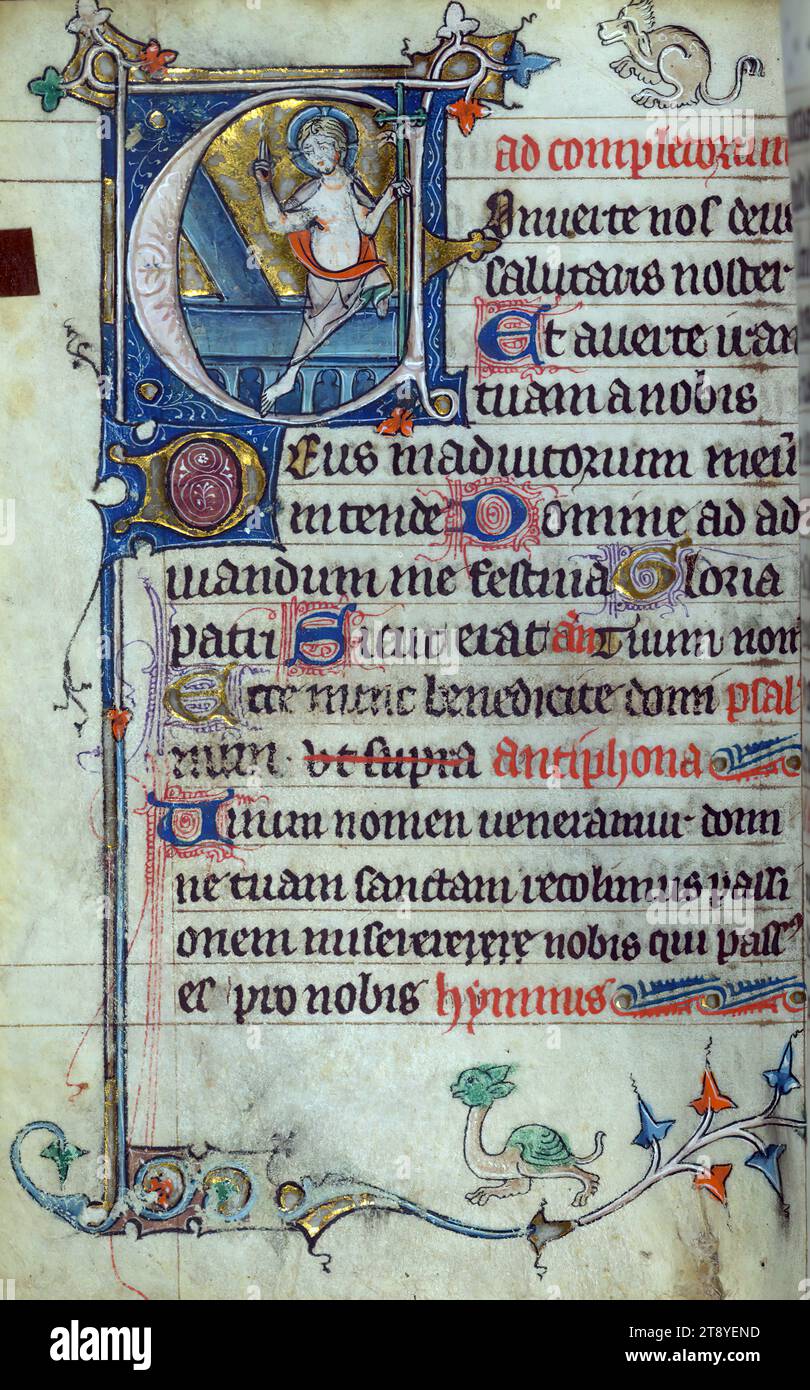 ad completorium
Conuerte nos deus
salutaris noster
Et auerte iram
tuam a nobis
Deus in adiutorium meū
intende Domine ad ad
iuuandum me festina Gloria
patri Sicut erat añ Tuum nom
Ecce nunc benedicite domi psal
mum ut supra antiphona
Tuum nomen ueneramur domi
ne tuam sanctam recolimus passi
onem miserere nobis qui passus
es pro nobis hymnus
alamy
Image ID: 2T8YEND
www.alamy.com